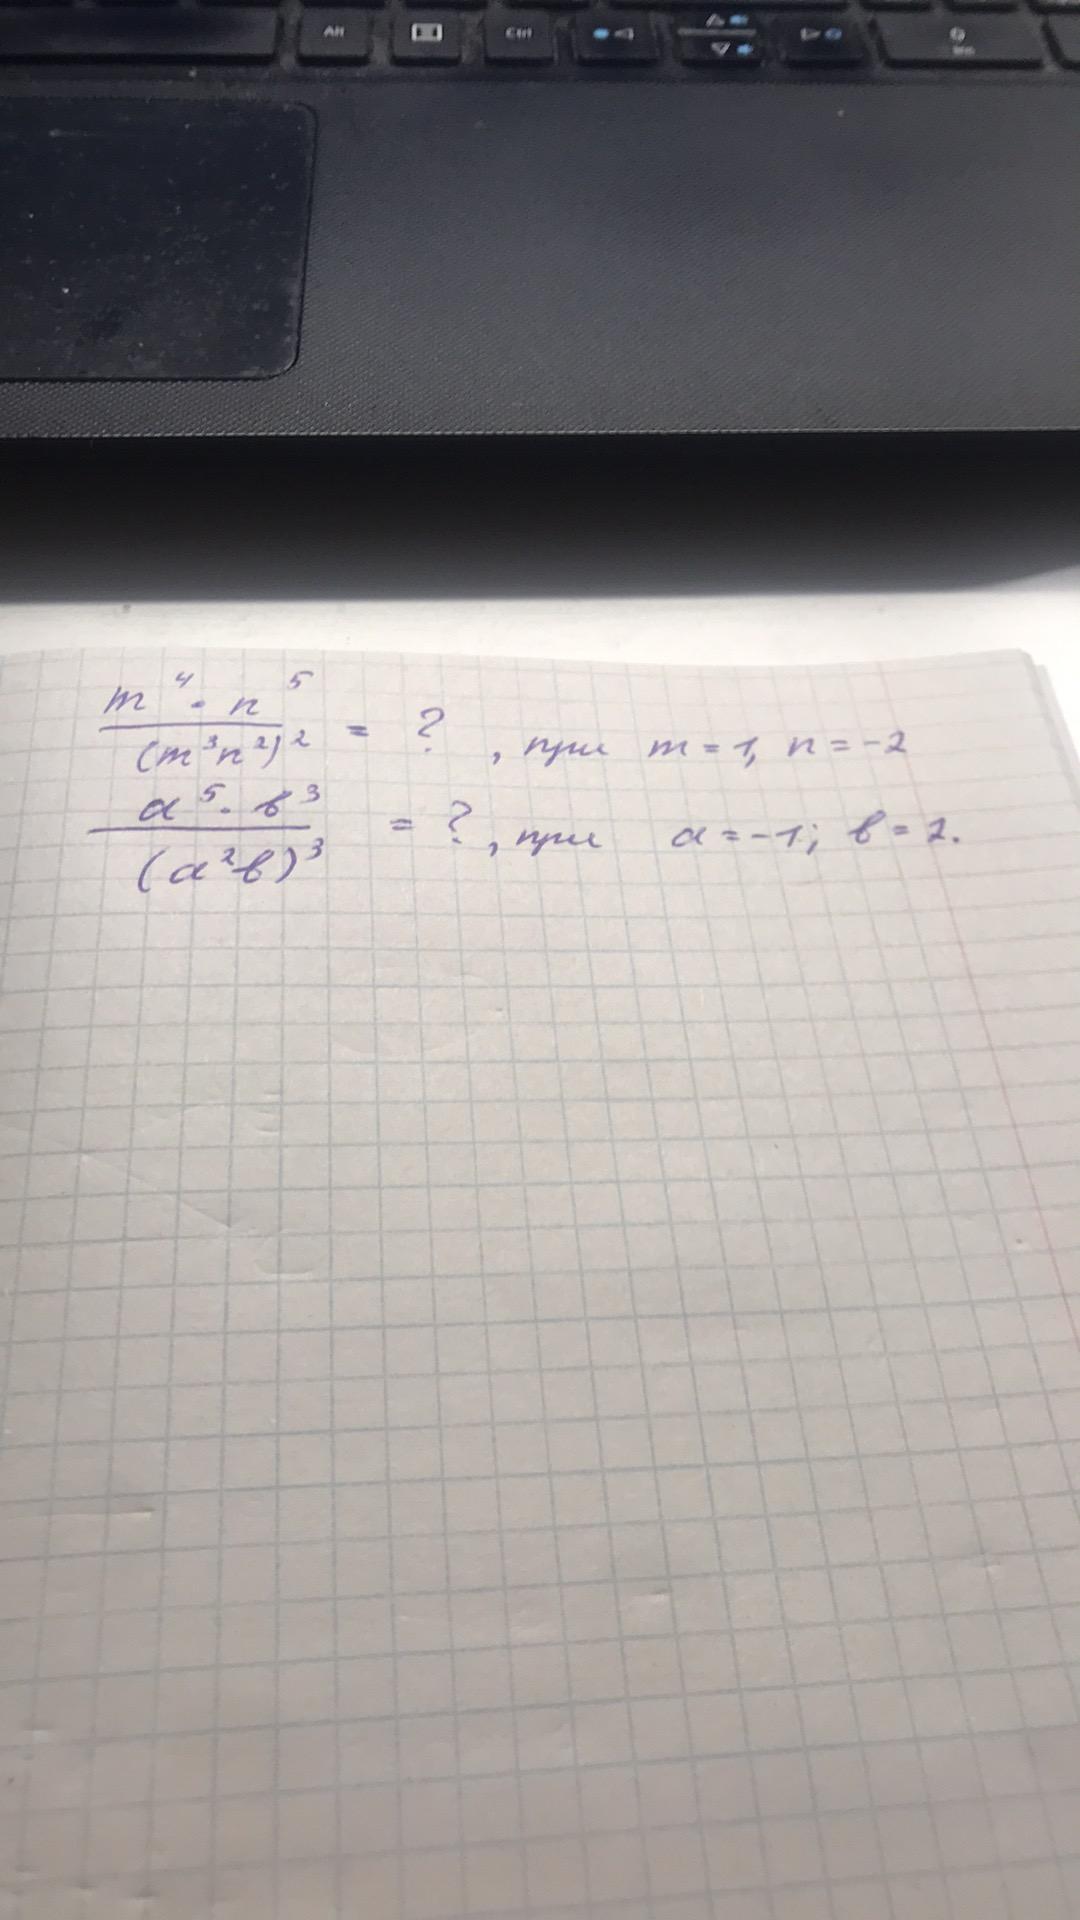 Alt
Ctrl
m⁴ · n⁵
(m³n²)² = ? , при m = 1, n = -2
a⁵ · b³
(a²b)³ = ? , при a = -1; b = 2.